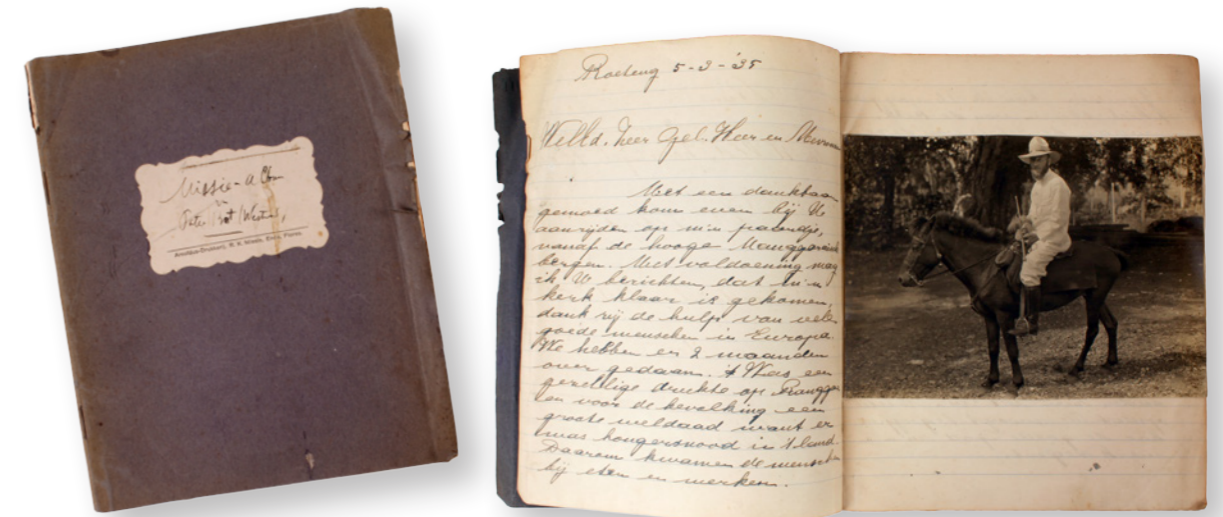 Missie-Alb
Pater
Arnoldus-Drukkerij, R. K. Missie, Ende, Flores.
Roeteng 5-3-'35
WelEd. Zeer Gel. Heer en Mevrouw
Met een dankbaar
gemoed kom even bij U
aanrijden op m'n paardje,
vanaf de hooge Manggaraische
bergen. Met voldoening mag
ik U berichten, dat m'n
kerk klaar is gekomen,
dank zij de hulp van vele
goede menschen in Europa.
We hebben er 2 maanden
over gedaan. 't Was een
gezellige drukte op Rangga
en voor de bevolking een
groote weldaad want er
was hongersnood in 't land.
Daarom kwamen de menschen
bij eten en werken.